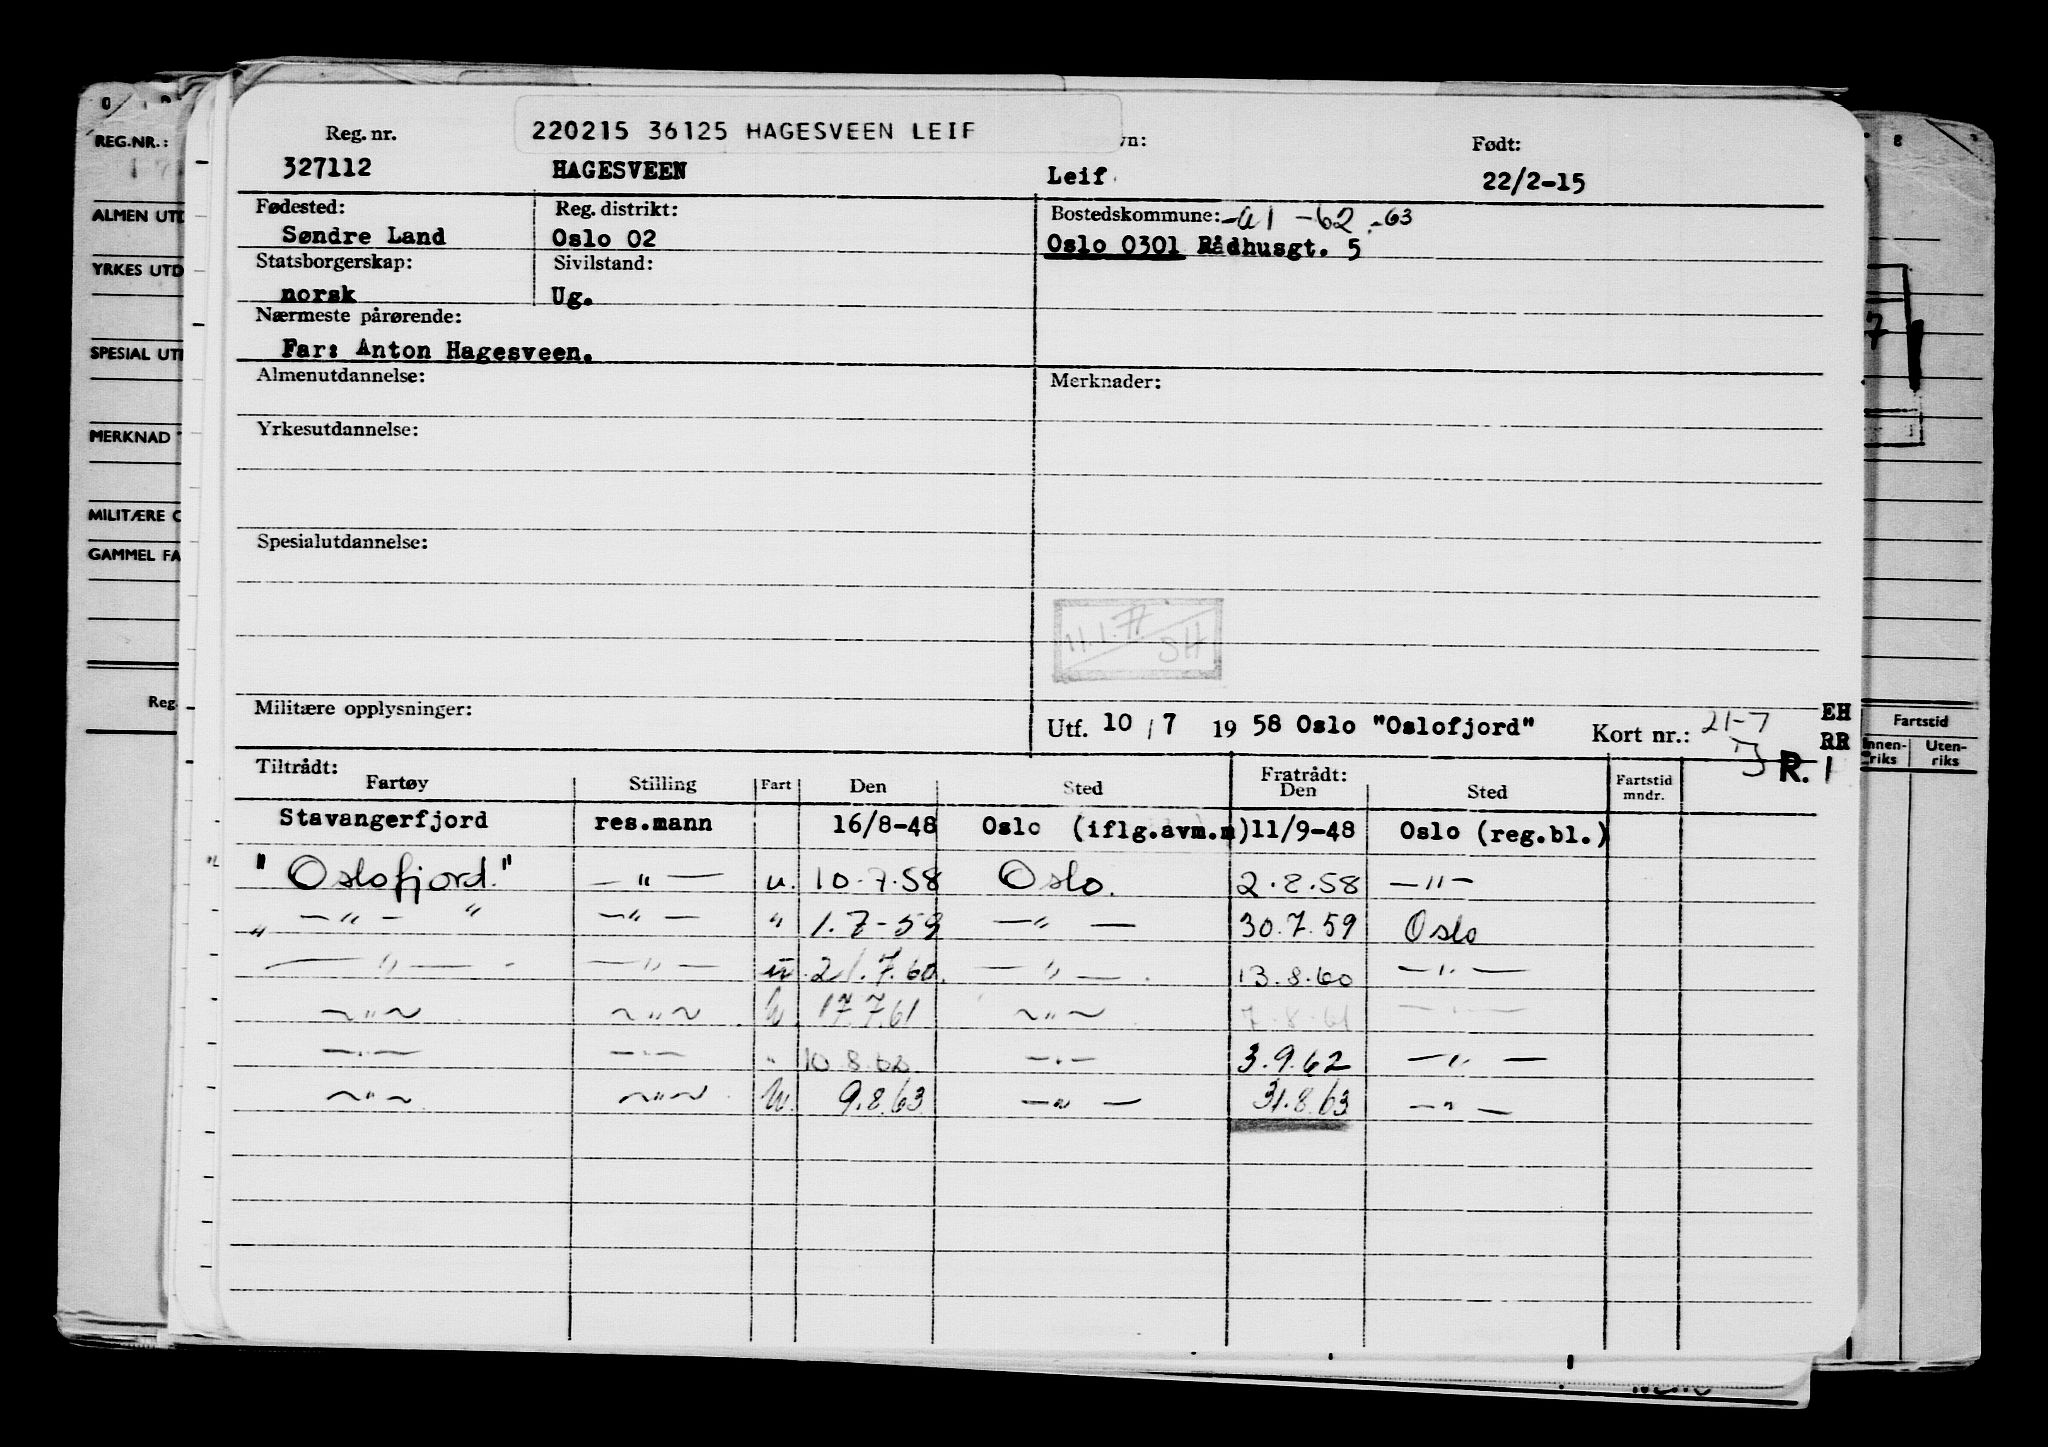 220215 36125 HAGESVEEN LEIF
Reg. nr. Født:
327112 HAGESVEEN Leif 22/2-15
Fødested: Reg. distrikt: Bostedskommune: -61 -62 -63
Søndre Land Oslo 02 Oslo 0301 Rådhusgt. 5
Statsborgerskap: Sivilstand:
norsk Ug.
Nærmeste pårørende:
Far: Anton Hagesveen.
Almenutdannelse: Merknader:
Yrkesutdannelse:
Spesialutdannelse:
11.1.77
SH
Militære opplysninger: Utf. 10 / 7 19 58 Oslo "Oslofjord" Kort nr.: 21-7
EH
RR
R. 1
Tiltrådt: Fratrådt:
Fartøy Stilling Fart Den Sted Den Sted Fartstid mndr.
Stavangerfjord res.mann 16/8-48 Oslo (iflg.avm.m) 11/9-48 Oslo (reg.bl.)
"Oslofjord." — " — u. 10.7.58 Oslo. 2.8.58 — " —
" — " — " — " — " 1.7-59 — " — 30.7.59 Oslo
— " — — " — u. 21.7.60. — " — 13.8.60 — " —
~ " ~ ~ " ~ u. 17.7.61 ~ " ~ 7.8.61 — " —
— " — — " — " 10.8.62 — " — 3.9.62 — " —
~ " ~ ~ " ~ u. 9.8.63 — " — 31.8.63 — " —
REG.NR.:
ALMEN UTD
YRKES UTD
SPESIAL UTD
MERKNAD
MILITÆRE O
GAMMEL FA
Reg.
7
Fartstid
Innen-
riks
Uten-
riks